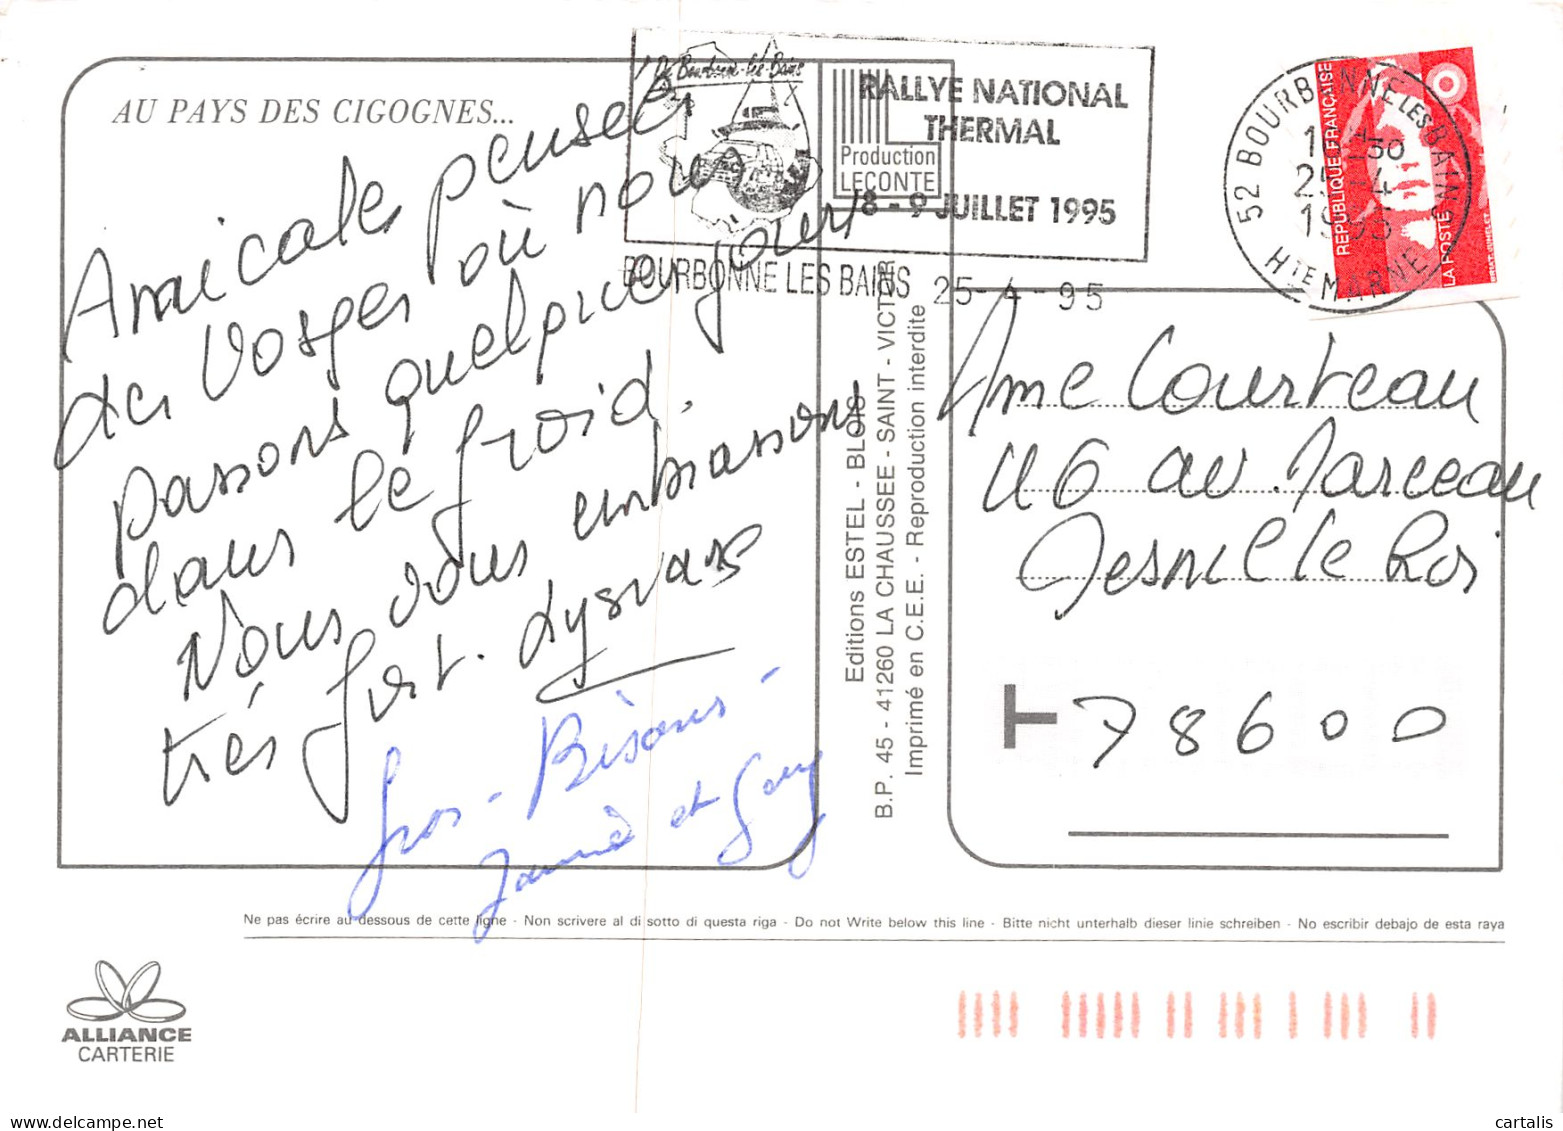 AU PAYS DES CIGOGNES...
Amicales pensées
des Vosges où nous
passons quelques jours
dans le froid.
Nous vous embrassons
très fort.
Gros - Bisous -
et
De Bourbonne-les-Bains
Production
LECONTE
RALLYE NATIONAL
THERMAL
8 - 9 JUILLET 1995
BOURBONNE LES BAINS 25-4-95
52 BOURBONNE LES BAINS
25-4
1995
HTE MARNE
RÉPUBLIQUE FRANÇAISE
LA POSTE
Editions ESTEL - BLOIS
B.P. 45 - 41260 LA CHAUSSEE - SAINT - VICTOR
Imprimé en C.E.E. - Reproduction interdite
Mme Courteau
46 av. Marceau
Mesnil le Roi
T 78600
Ne pas écrire au-dessous de cette ligne - Non scrivere al di sotto di questa riga - Do not Write below this line - Bitte nicht unterhalb dieser linie schreiben - No escribir debajo de esta raya
ALLIANCE
CARTERIE
cartalis